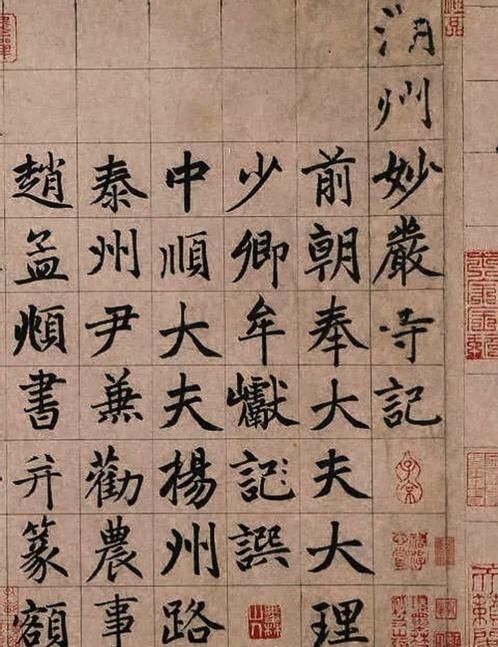 湖州妙嚴寺記
前朝奉大夫大理
少卿牟巘記撰
中順大夫揚州路
泰州尹兼勸農事
趙孟頫書并篆額